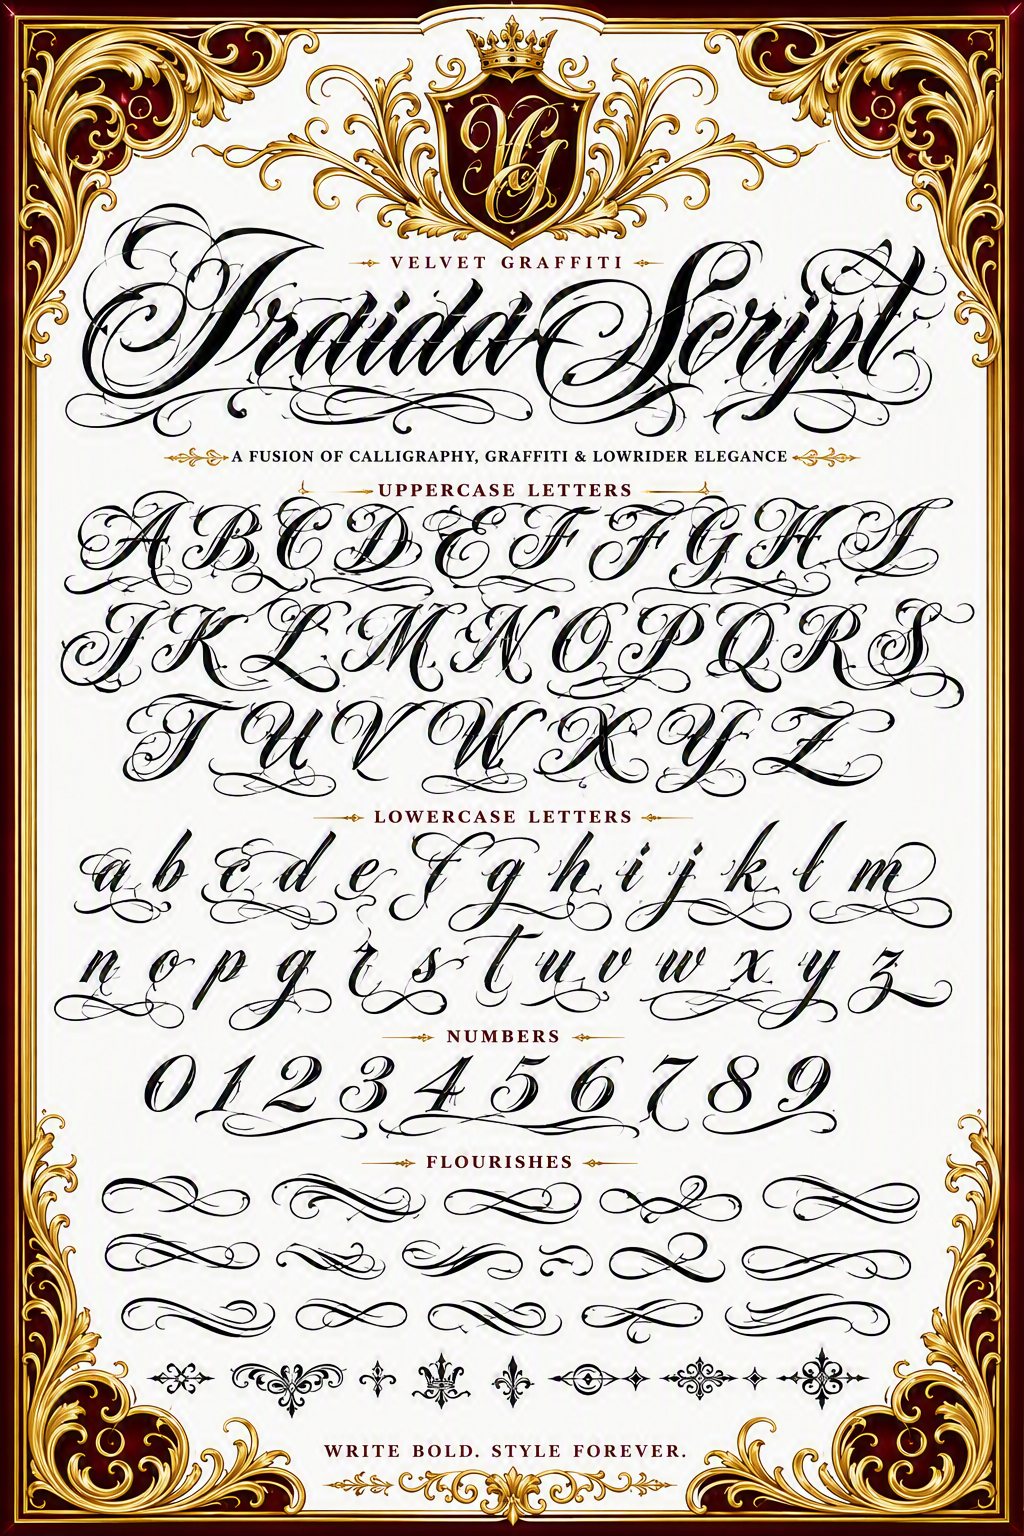 VG
VELVET GRAFFITI
Iraida Script
A FUSION OF CALLIGRAPHY, GRAFFITI & LOWRIDER ELEGANCE
UPPERCASE LETTERS
A B C D E F F G H I
J K L M N O P Q R S
T U V W X Y Z
LOWERCASE LETTERS
a b c d e f g h i j k l m
n o p g r s t u v w x y z
NUMBERS
0 1 2 3 4 5 6 7 8 9
FLOURISHES
WRITE BOLD. STYLE FOREVER.